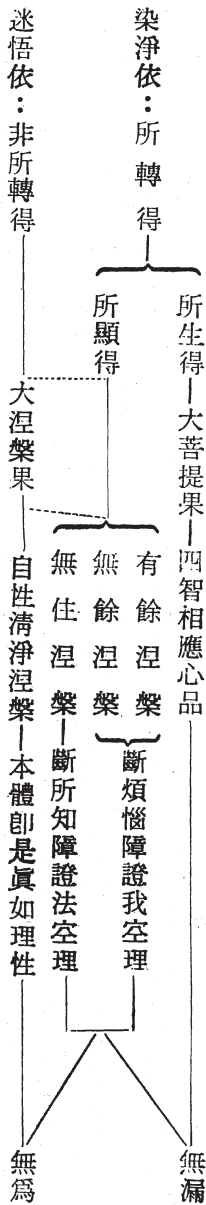 染淨依：所轉得
所生得
大菩提果
四智相應心品
無漏
所顯得
有餘涅槃
無餘涅槃
斷煩惱障證我空理
無住涅槃
斷所知障證法空理
迷悟依：非所轉得
大涅槃果
自性清淨涅槃
本體卽是眞如理性
無爲